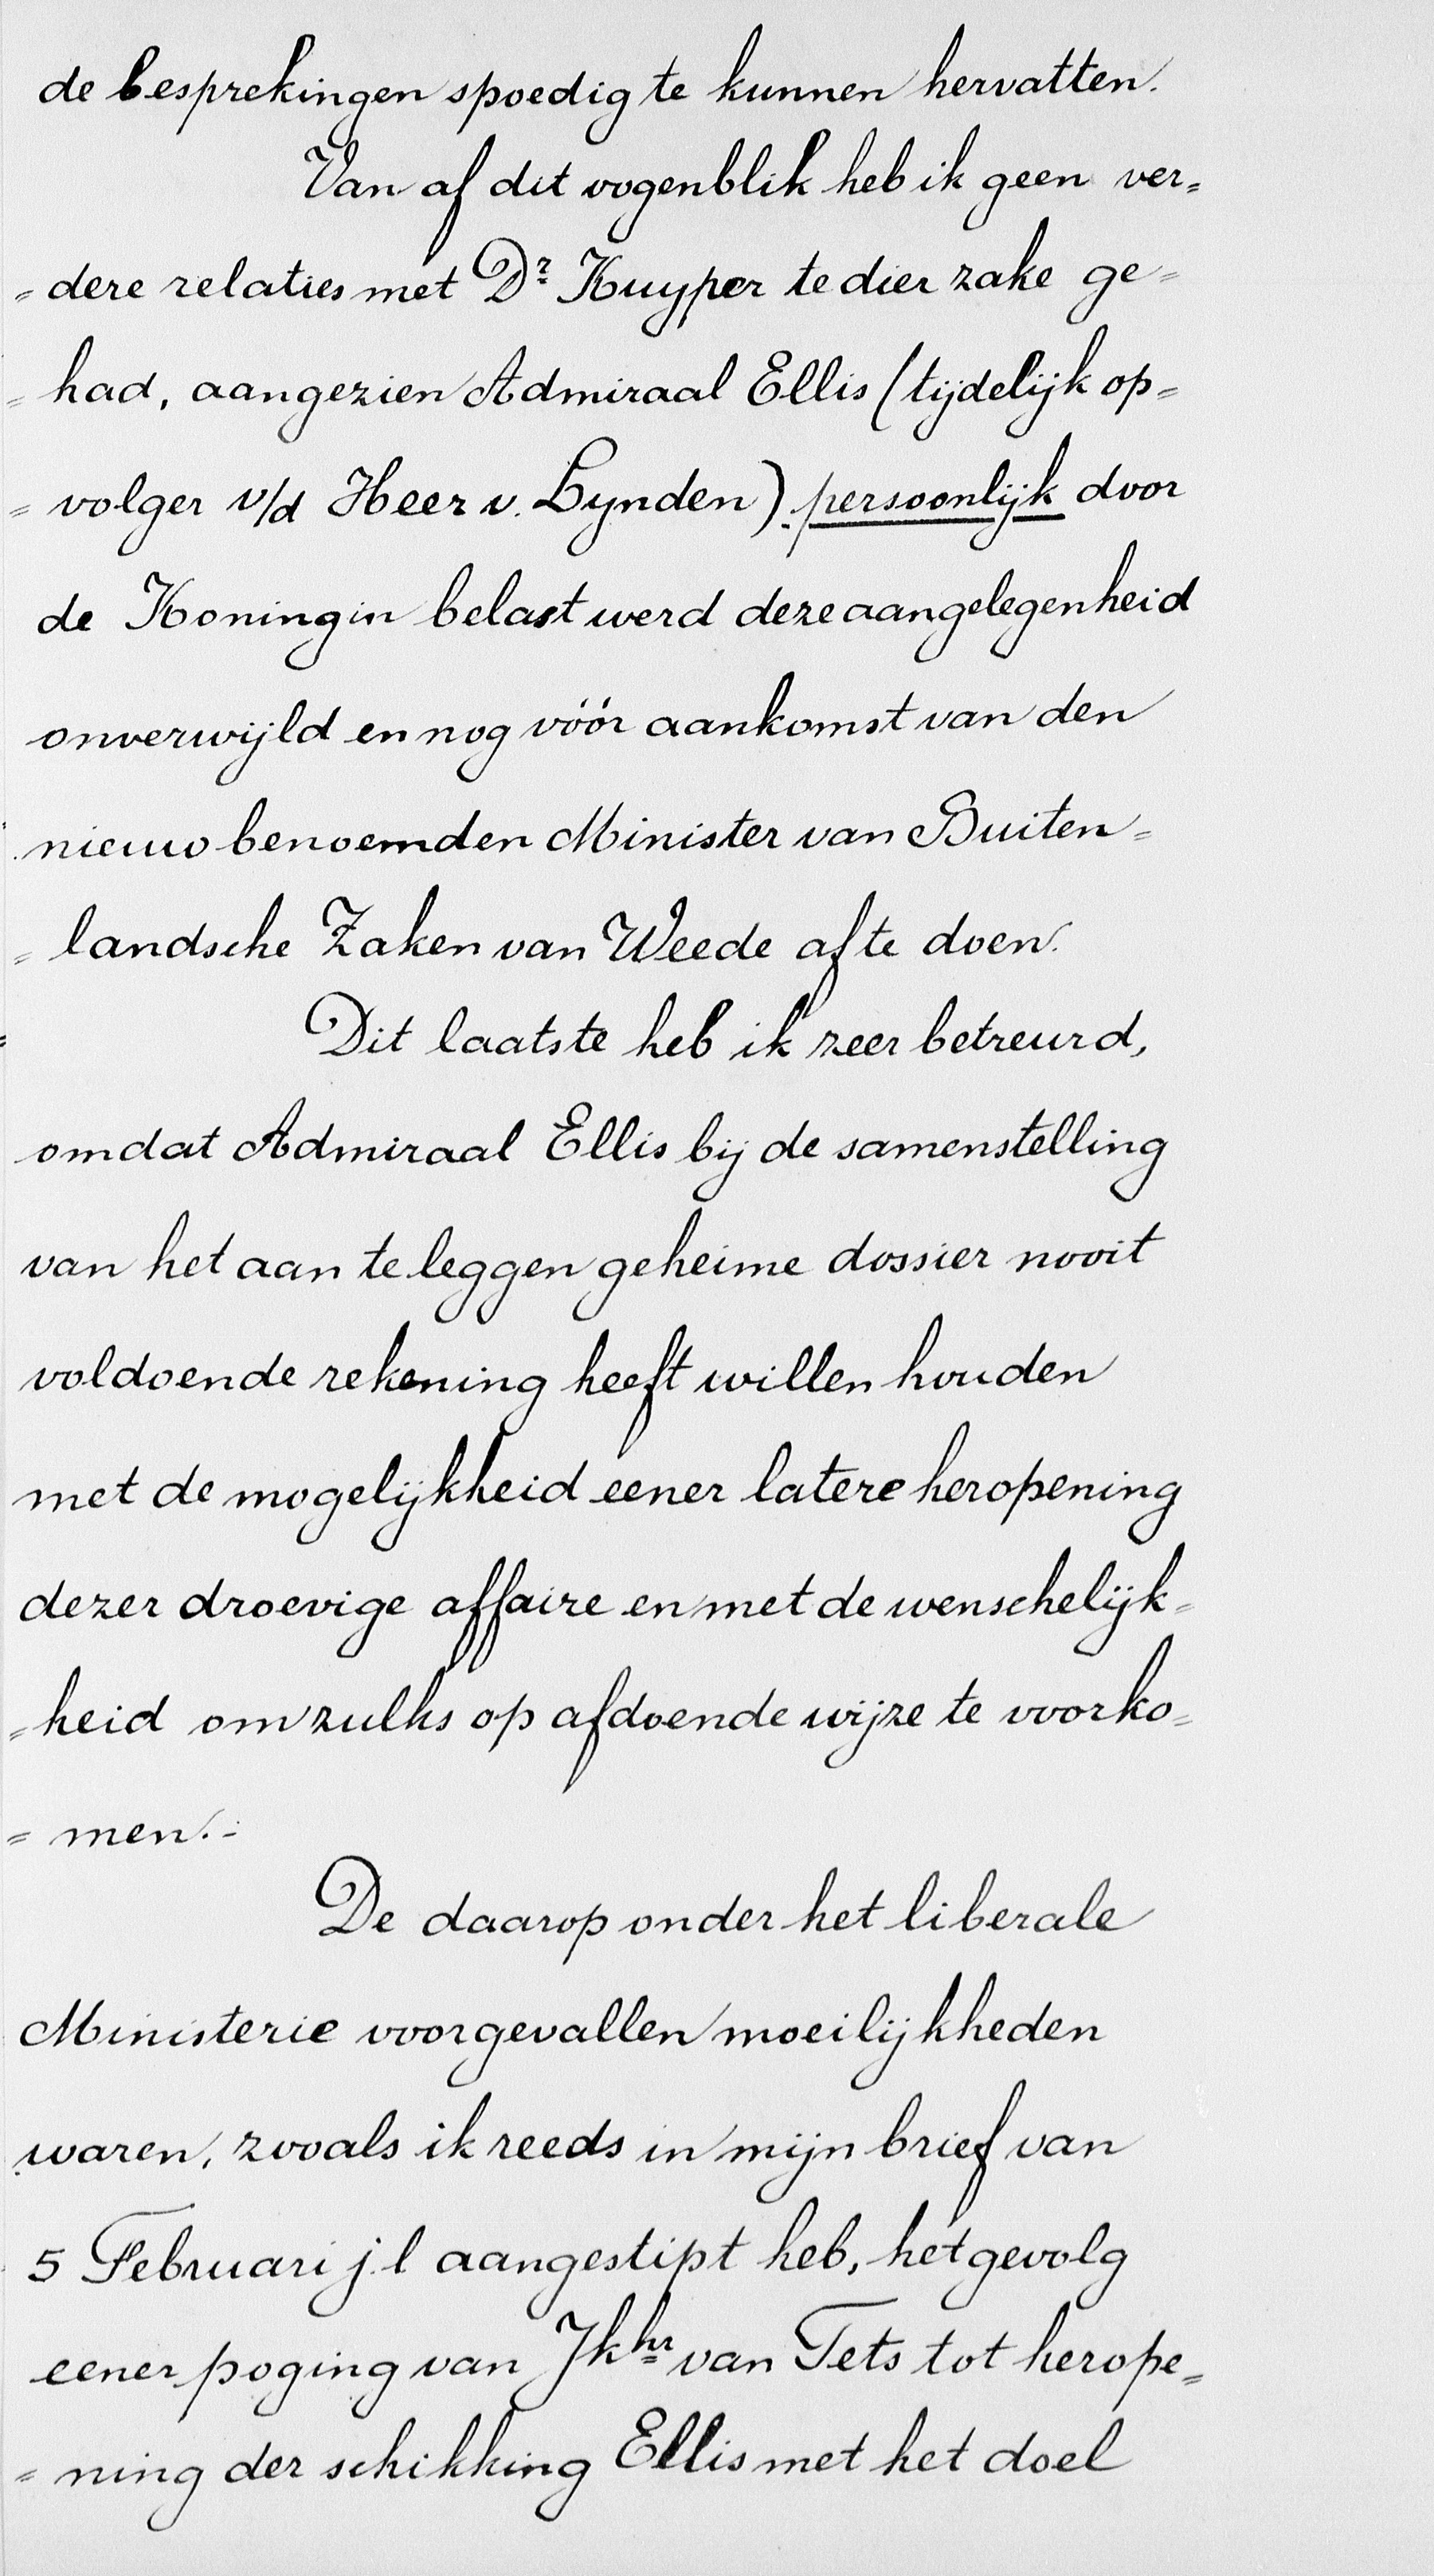 de besprekingen spoedig te kunnen hervatten.
Van af dit oogenblik heb ik geen ver=
=dere relaties met Dr Kuyper te dier zake ge=
=had, aangezien Admiraal Ellis (tijdelijk op=
=volger v/d Heer v. Lynden) persoonlijk door
de Koningin belast werd deze aangelegenheid
onverwijld en nog vóór aankomst van den
nieuw benoemden Minister van Buiten=
=landsche Zaken van Weede af te doen.
Dit laatste heb ik zeer betreurd,
omdat Admiraal Ellis bij de samenstelling
van het aan te leggen geheime dossier nooit
voldoende rekening heeft willen houden
met de mogelijkheid eener latere heropening
dezer droevige affaire en met de wenschelijk=
=heid om zulks op afdoende wijze te voorko=
=men.-
De daarop onder het liberale
Ministerie voorgevallen moeilijkheden
waren, zooals ik reeds in mijn brief van
5 Februari j.l aangestipt heb, het gevolg
eener poging van Jkhr van Tets tot herope=
=ning der schikking Ellis met het doel